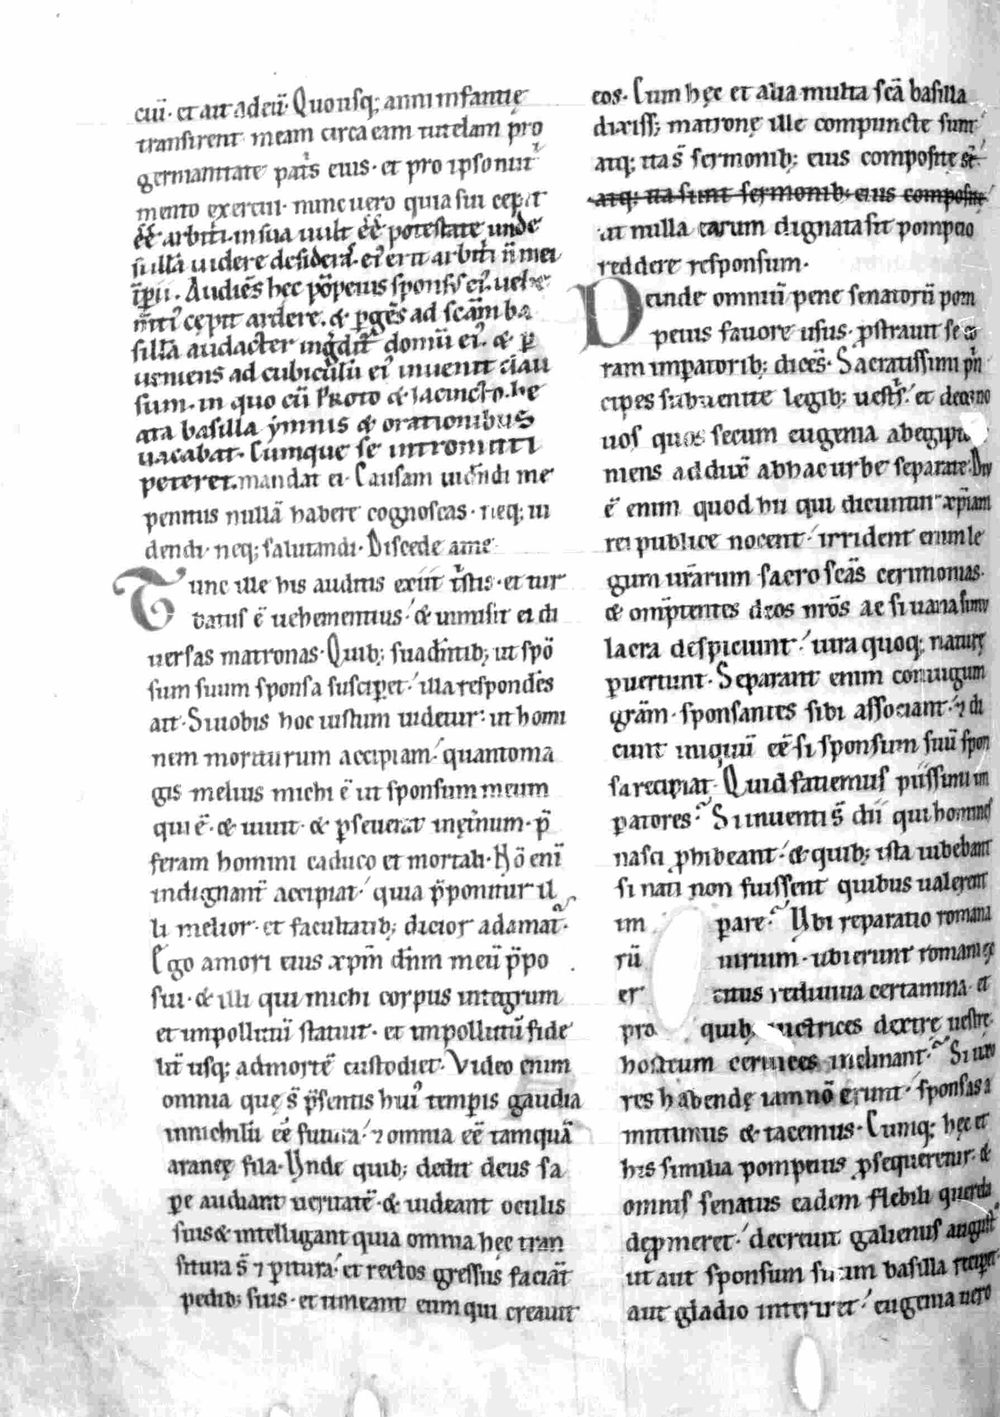 cui̅· et ait ad eu̅· Quousq; anni infantię
transirent meam circa eam tutelam pro
germanitate pat̅s eius· et pro ipso nutri
mento exercui· nunc uero quia sui cepit
e̅e̅ arbitrii· in sua uult e̅e̅ potestate unde
si illa̅ uidere desidera̅s· ei᷒ erit arbitrii n̅ mei
i̅p̅ii· Audie̅s hec po̅peius spons᷒ ei᷒· uehe
m̅t̅i᷒ cepit ardere· & p̲ge̅s ad sca̅m ba
silla̅ audacter ing̅dit̅ domu̅ ei᷒· & p̲
ueniens ad cubiculu̅ ei᷒ inuenit clau
sum· in quo cu̅ Proto & Iacincto· be
ata basilla ymnis & orationibus
uacabat· Cumque se intromitti
peteret· mandat ei· Causam uide̅di me
penitus nulla̅ habere cognoscas· neq; ui
dendi· neq; salutandi· Discede a me
Tunc ille his auditis exiit t̅stis· et tur
batus e̅ uehementius· & inmisit ei di
uersas matronas· Quib; suade̅ntib; ut spo̅
sum suum sponsa susciperet· illa responde̅s
ait· Si uobis hoc iustum uidetur· ut homi
nem moriturum accipiam· quanto ma
gis melius michi e̅ ut sponsum meum
qui e̅· & uiuit· & p̲seuerat in ęt̅num· p̅
feram homini caduco et mortali· No̅ eni̅
indignant̅ accipiat· quia p̅ponitur il
li melior· et facultatib; dicior adamat̅·
Ego amori eius xp̅m dn̅m meu̅ p̅po
sui· & illi qui michi corpus integrum
et inpollutu̅ statuit· et inpollutu̅ fide
lit̅ usq; ad morte̅ custodiet· Video enim
omnia quę s̅ p̅sentis hui᷒ temp̲is gaudia
in nichilu̅ e̅e̅ futura· ⁊ omnia e̅e̅ tamqua̅
aranę fila· Unde quib; dedit deus sa
pe audiant ueritate̅· & uideant oculis
suis & intelligant quia omnia hęc tran
situra s̅ ⁊ p̲itura· et rectos gressus facia̅t
pedib; suis· et timeant eum qui creauit
eos· Cum hęc et alia multa sca̅ basilla
dixiss; matronę ille compuncte sunt
atq; ita s̅ sermonib; eius composite st̅
atq; ita sunt sermonib; eius composite
ut nulla earum dignata sit pompeio
reddere responsum·
Deinde omniu̅ pene senatoru̅ pom
peius fauore usus· p̲strauit se co
ram imp̲atorib; dice̅s· Sacratissimi p̅n
cipes subuenite legib; uest̅s· et deos no
uos quos secum eugenia ab egipto
niens adduxit ab hac urbe separate· Diu
e̅ enim quod hii qui dicuntur xp̅iani
rei publice nocent· irrident enim le
gum ur̅arum sacrosca̅s cerimonias·
& omp̅tentes deos nr̅os ac si uana simu
lacra despiciunt· iura quoq; naturę
p̲uertunt· Separant enim coniugum
gra̅m· sponsantes sibi associant· ⁊ di
cunt iniquu̅ e̅e̅ si sponsum suu̅ spon
sa recipiat· Quid faciemus piissimi im
p̲atores· Si inuenti s̅ dii qui homines
nasci p̲hibeant· & quib; ista iubebant
si nati non fuissent quibus ualerent
im p̲are· Ubi reparatio romana
ru̅ uirium· ubi erunt romani ex
er citus rediuiua certamina et
pro quib; uictrices dextrę uestre
hostrum ceruices inclinant· Si uxo
res habendę iam no̅ erunt· sponsas a
mittimus & tacemus· Cumq; hęc et
his similia pompeius p̲sequeretur· &
omnis senatus eadem flebili querela
dep̲meret· decreuit galienus august᷒
ut aut sponsum suum basilla recip̲et
aut gladio interiret· eugenia uero